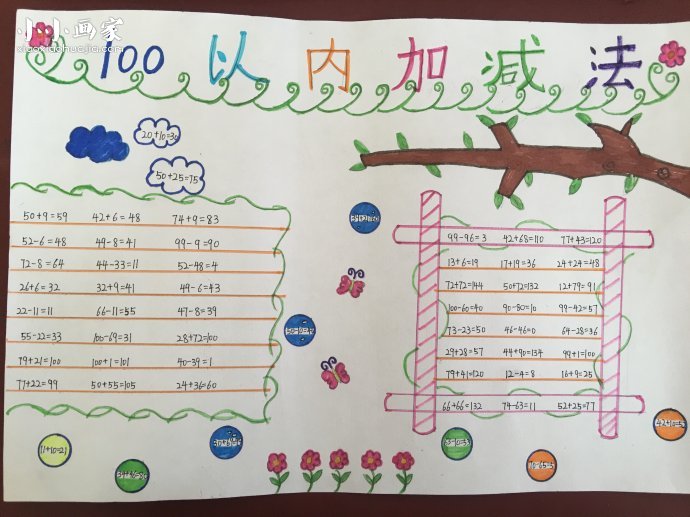 小小画家
xiaoxiaohuajia.com
100 以内加减法
20+10=30
50+25=75
50+9=59 42+6=48 74+9=83
52-6=48 49-8=41 99-9=90
72-8=64 44-33=11 52-48=4
26+6=32 32+9=41 49-6=43
22-11=11 66-11=55 47-8=39
55-22=33 100-69=31 28+72=100
79+21=100 100+1=101 40-39=1
77+22=99 50+55=105 24+36=60
99-96=3 42+68=110 77+43=120
13+6=19 17+19=36 24+24=48
72+72=144 50+72=132 12+79=91
100-60=40 90-80=10 99-42=57
73-23=50 46-46=0 64-28=36
29+28=57 44+90=134 99+1=100
79+41=120 12-4=8 16+9=25
66+66=132 74-63=11 52+25=77
11+10=21